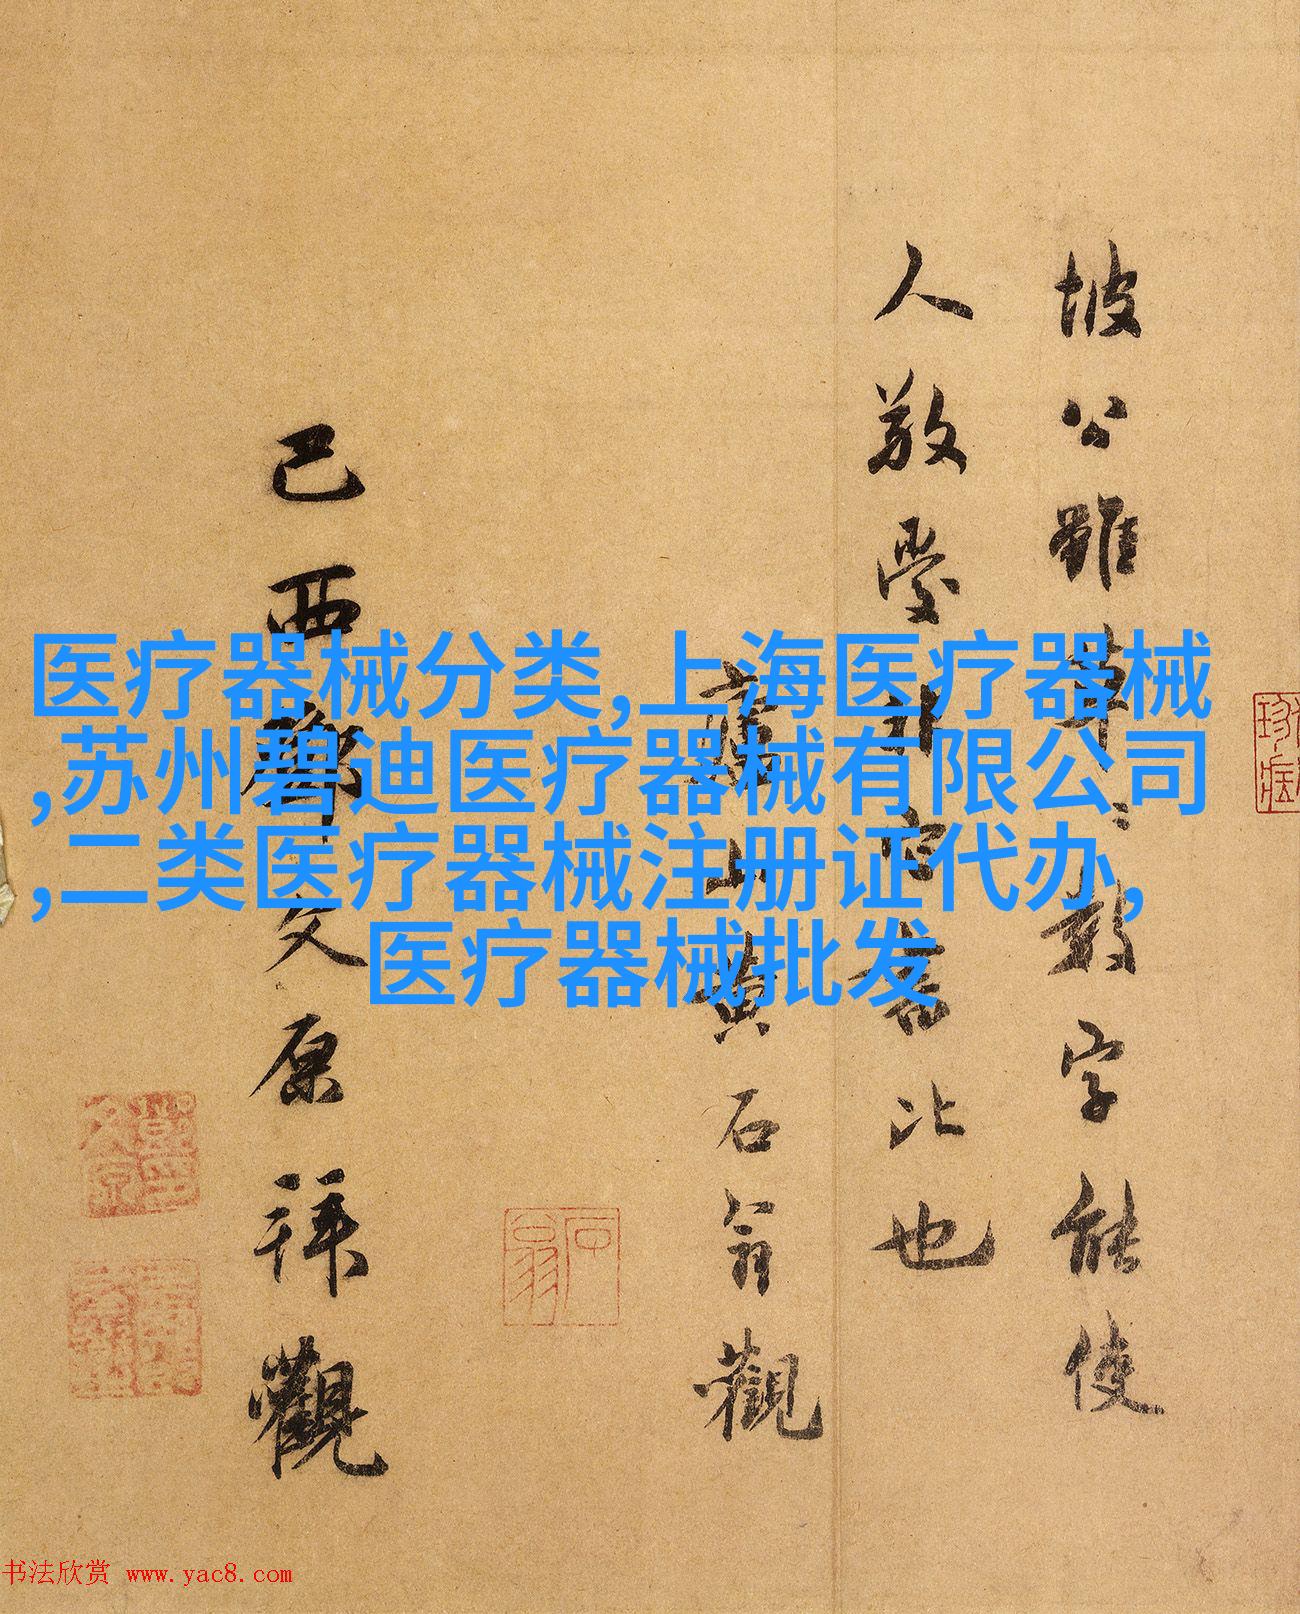 医疗器械分类,上海医疗器械
,苏州碧迪医疗器械有限公司
,二类医疗器械注册证代办,
医疗器械批发
坡公雖草〻數字能使
人敬愛非官書比也
廬山黃石翁觀
石翁
己酉鄧文原拜觀
书法欣赏 www.yac8.com